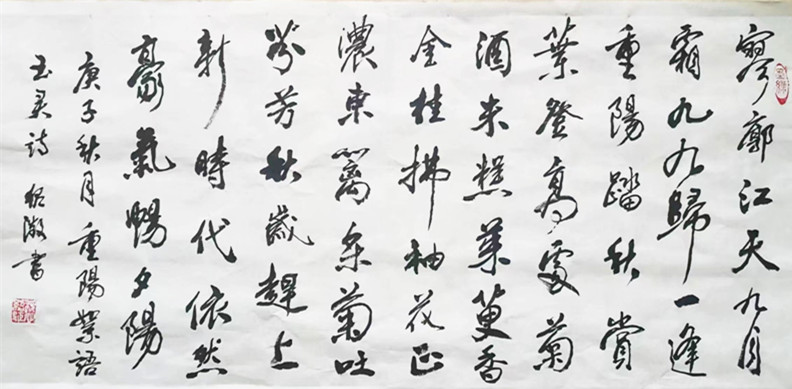 寥廓江天九月
霜九九歸一逢
重陽踏秋賞
葉登高處菊
酒米糕茱萸香
金桂拂袖花正
濃東籬朵菊吐
芬芳秋歲趕上
新時代依然
豪氣暢夕陽
庚子秋月重陽絮語
玉詩書